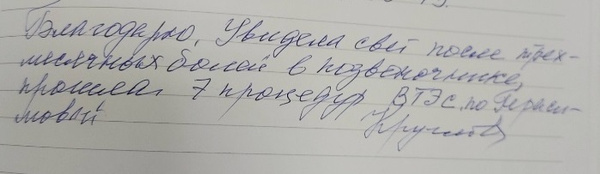 Благодарю, Увидела свет после трех-
месячных болей в позвоночнике,
прошла 7 процедур ВТЭС, по Гераси-
мовой